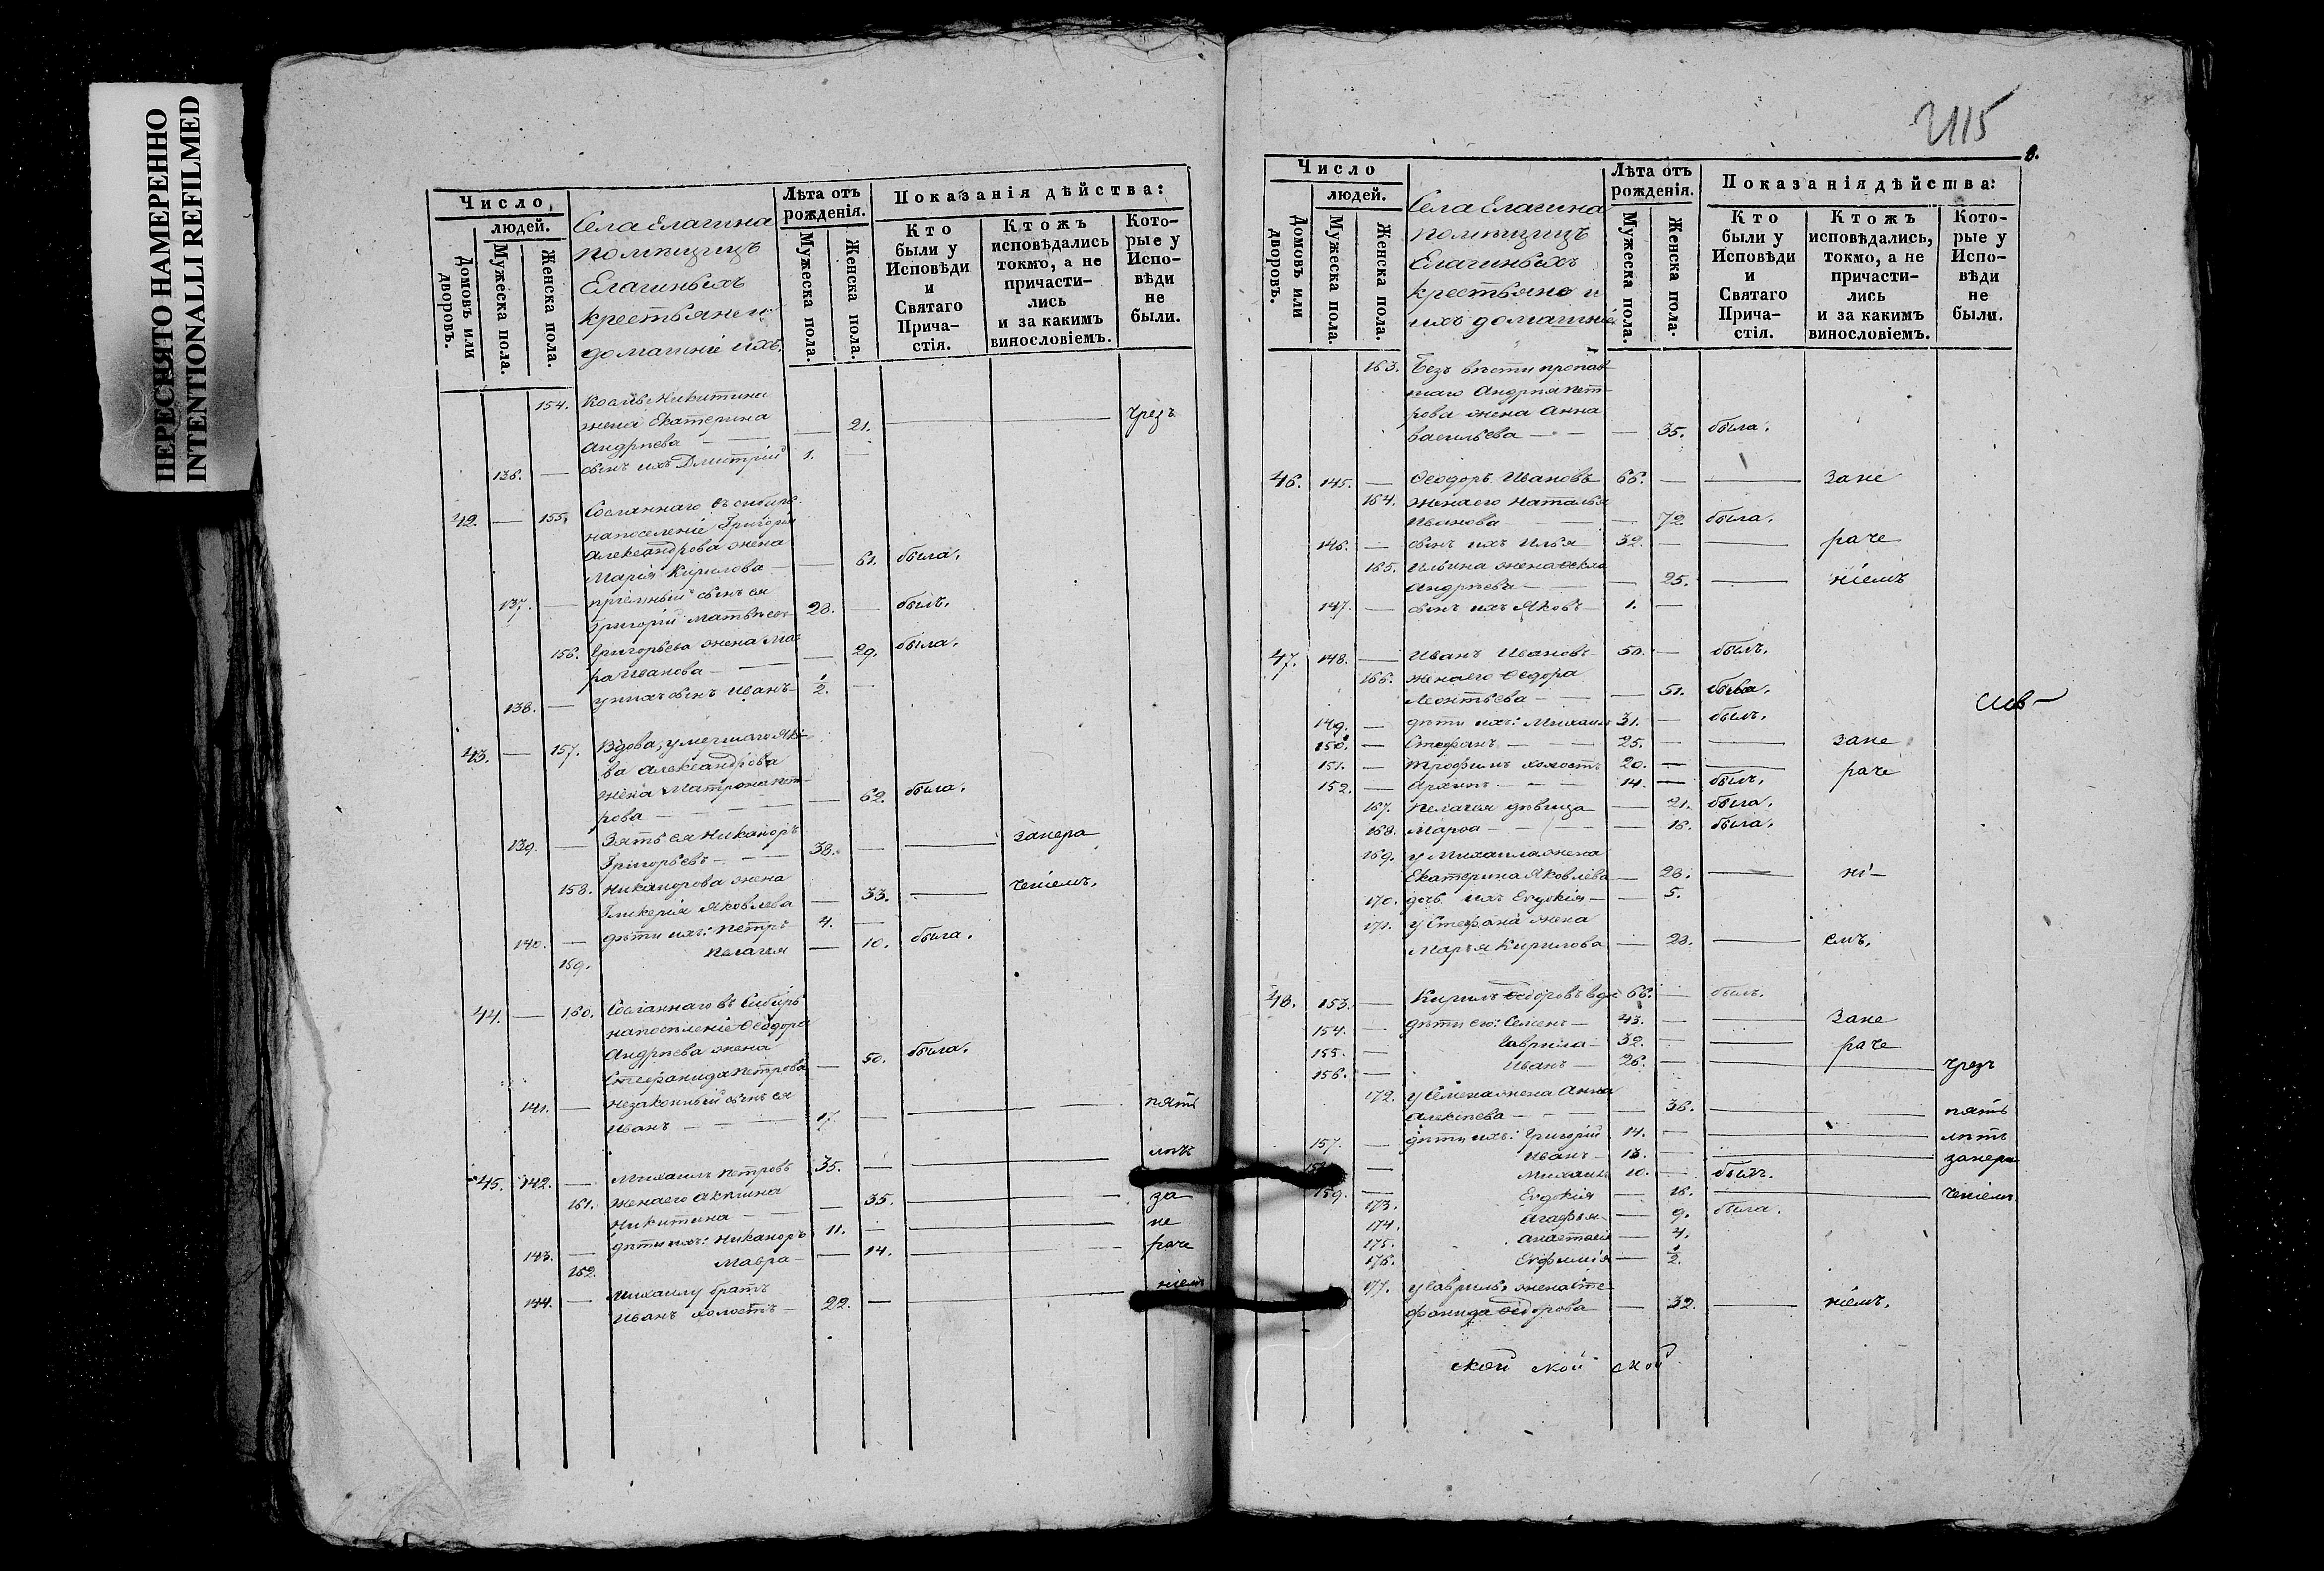 ПЕРЕСНЯТО НАМЕРЕННО
INTENTIONALLI REFILMED
Число
людей.
Домовъ или дворовъ.
Мужеска пола.
Женска пола.
Села Елагина
помѣщицъ
Елагиныхъ
крестьяне и
домашніе ихъ.
Лѣта отъ рожденія.
Мужеска пола.
Женска пола.
Показанія дѣйства:
Кто были у Исповѣди и Святаго Прича-стія.
Ктожъ исповѣдались токмо, а не причасти-лись и за какимъ винословіемъ.
Кото-рые у Испо-вѣди не были.
154. Никитина
жена Екатерина
Андрѣева — — 21. — чрезъ
136. — сынъ ихъ Дмитрій 1. —
42. — 155. Сосланнаго въ сибирь
на поселеніе Григорія
Александрова жена
Марія Кирилова — — 61. была.
137. — пріемный сынъ ея
Григорій Матвѣевъ 28. — былъ.
156. Григорьева жена Мав
ра Иванова — — 29. была.
138. — у нихъ сынъ Иванъ — 1/2. —
43. — 157. Вдова, умершаго Яко
ва Александрова
жена Матрона Пет-
рова — — 62. была.
139. — Зять ея Никаноръ
Григорьевъ — — 38. — — занера
158. Никанорова жена
Гликерія Яковлева — 33. — ченіемъ.
140. — дѣти ихъ: Петръ 4. —
159. Пелагея — 10. была.
44. — 160. Сосланнаго въ Сибирь
на поселеніе Ѳеодора
Андрѣева жена
Стефанида Петрова — 50. была.
141. — незаконный сынъ ея
Иванъ — — 17. — — пять
лѣтъ
45. 142. — Михаилъ Петровъ 35. — —
161. Жена его Акилина
Никитина — — 35. — за
не
143. — дѣти ихъ: Никаноръ 11. — —
162. Мавра — — 14. — раче
144. — Михаилу братъ
Иванъ холостъ — 22. — — ніемъ
2115
8.
Число
людей.
Домовъ или дворовъ.
Мужеска пола.
Женска пола.
Села Елагина
помѣщицъ
Елагиныхъ
крестьяне и
ихъ домашніе
Лѣта отъ рожденія.
Мужеска пола.
Женска пола.
Показанія дѣйства:
Кто были у Исповѣди и Святаго Прича-стія.
Ктожъ исповѣдались, токмо, а не причасти-лись и за какимъ винословіемъ.
Кото-рые у Испо-вѣди не были.
163. Безъ вѣсти пропав
шаго Андрея Пет-
рова жена Анна
Васильева — — — 35. была.
46. 145. — Ѳеодоръ Ивановъ 66. — — Зане
164. Жена его Наталья
Иванова — — — 72. была.
146. — сынъ ихъ Илья — 32. — — раче
165. Ильина жена Ѳекла
Андрѣева — — — 25. — ніемъ
147. — сынъ ихъ Яковъ — 1. —
47. 148. — Иванъ Ивановъ — 50. — былъ.
166. Жена его Ѳедора
Леонтьева — — — 51. была.
149. — дѣти ихъ: Михаилъ 31. — былъ.
150. — Стефанъ — — 25. — — зане
151. — Трофимъ холостъ 20. — — раче
152. — Архипъ — — 14. — былъ.
167. Пелагея дѣвица — 21. была.
168. Марѳа — — — 16. была.
169. у Михаила жена
Екатерина Яковлева — 28. — ні —
170. дочь ихъ Евдокія — — 5.
171. у Стефана жена
Марья Кирилова — 28. — емъ.
48. 153. — Кирилъ Ѳеодоровъ вдо 66. — былъ.
154. — дѣти его: Семенъ — 43. — — Зане
155. — Гаврила — 32. — — раче
156. — Иванъ — 26. — — чрезъ
172. у Семена жена Анна
Алексѣева — — — 36. — пять
157. — дѣти ихъ: Григорій 14. — — лѣтъ
158. — Иванъ — 13. — — занера
159. — Михаилъ 10. — былъ.
173. Евдокія — 16. — ченіемъ
174. Агафья — — 9. была.
175. Анастасія — 4.
176. Евфимія — 1/2.
177. у Гаврилы жена Сте
фанида Ѳедорова — 32. — ніемъ.
ской ской ской